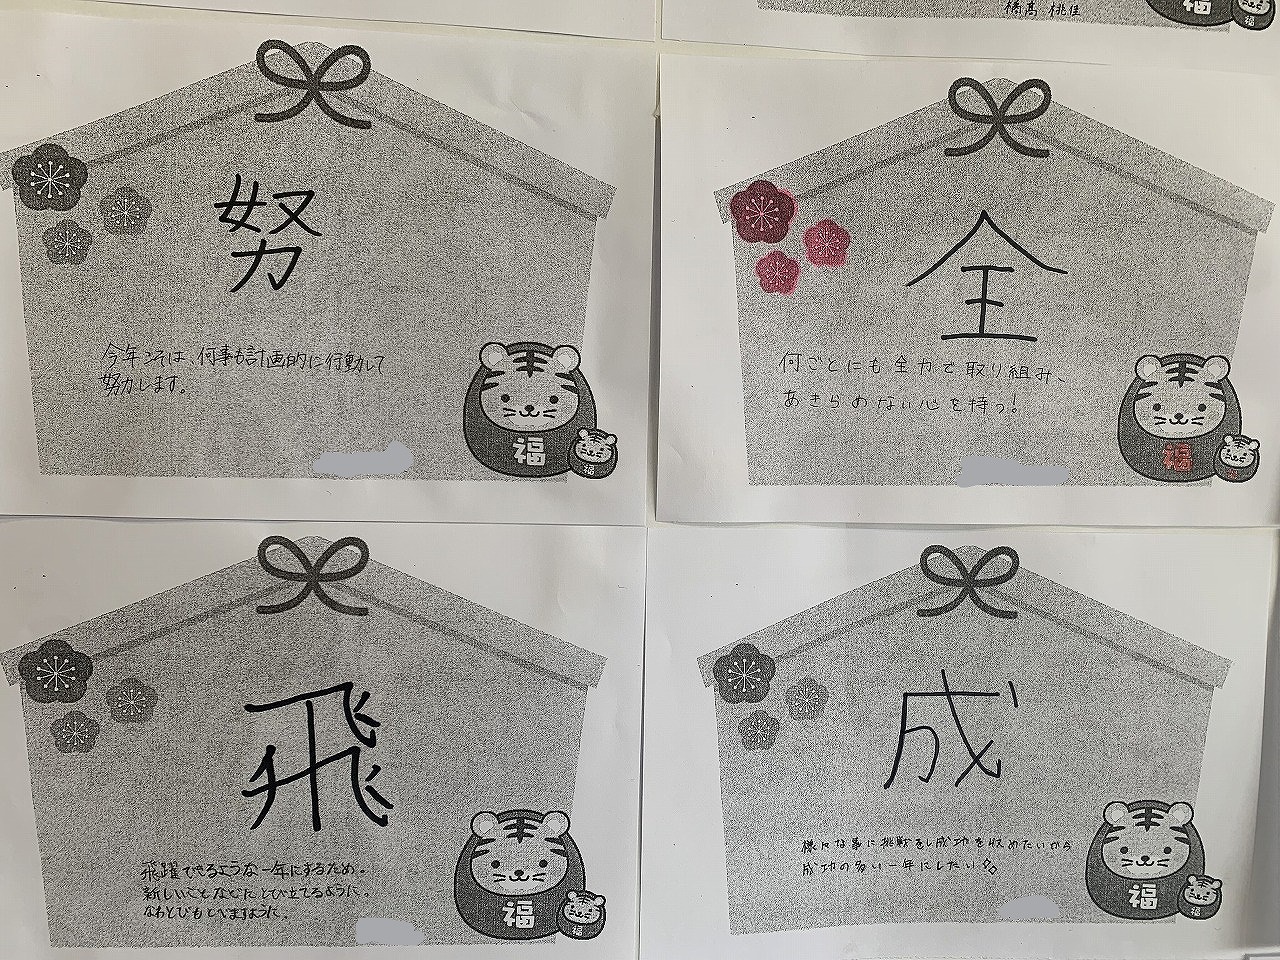 橋髙 桃佳
福
福
努
今年こそは、何事も計画的に行動して
努力します。
福
福
全
何ごとにも全力で取り組み、
あきらめない心を持つ!
福
福
飛
飛躍できるような一年にするため。
新しいことなどにとび立てるように。
なわとびもとべますように。
福
福
成
様々な事に挑戦をし成功を収めたいから
成功の多い一年にしたい
福
福